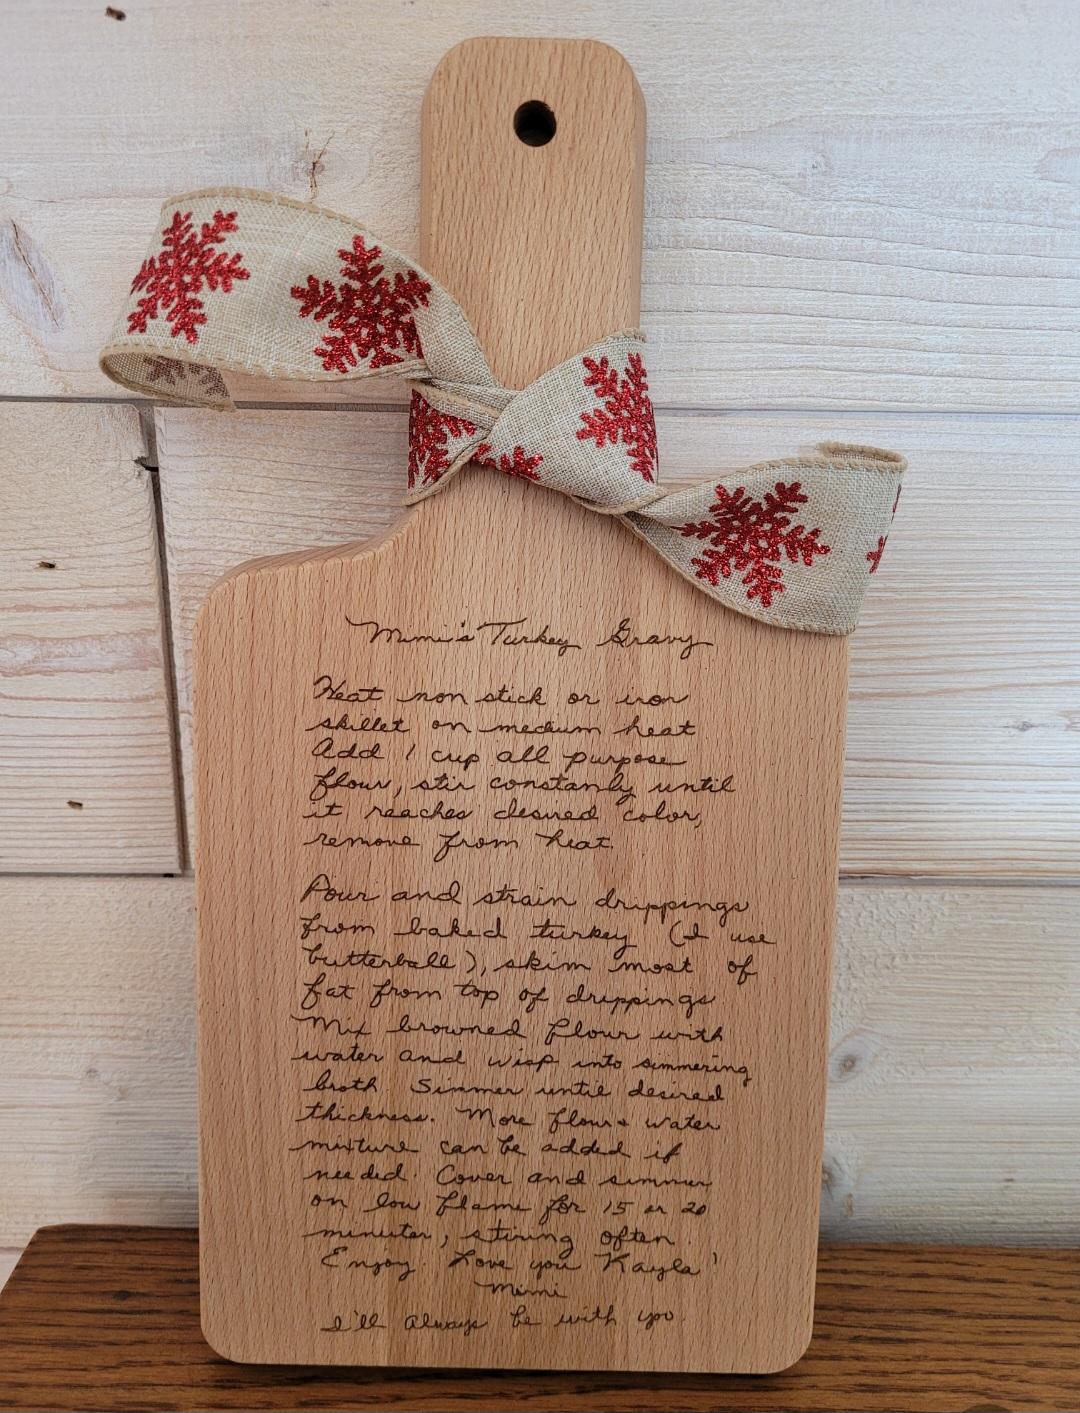 Mimi's Turkey Gravy
Heat non stick or iron
skillet on medium heat
Add 1 cup all purpose
flour, stir constanly until
it reaches desired color,
remove from heat.
Pour and strain drippings
from baked turkey (I use
butterball), skim most of
fat from top of drippings
Mix browned flour with
water and wisp into simmering
broth Simmer until desired
thickness. More flour & water
mixture can be added if
needed. Cover and simmer
on low flame for 15 or 20
minutes, stiring often.
Enjoy. Love you Kayla!
Mimi
I'll always be with you.